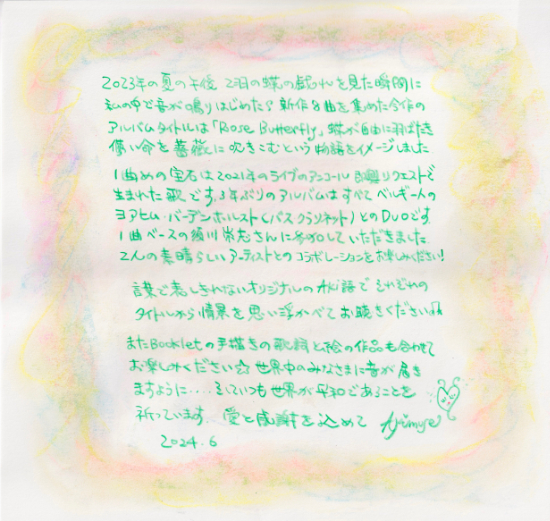 2023年の夏の午後 2羽の蝶の戯れを見た瞬間に
私の中で音が鳴りはじめた♪ 新作8曲を集めた今作の
アルバムタイトルは「Rose Butterfly」蝶が自由に羽ばたき
儚い命を薔薇に吹きこむという物語をイメージしました
1曲めの宝石は2021年のライブのアンコール 即興リクエストで
生まれた歌です。3年ぶりのアルバムはすべてベルギー人の
ヨアヒム・バーデンホルスト(バスクラリネット)とのDuoです
1曲ベースの須川崇志さんに参加していただきました
2人の素晴らしいアーティストとのコラボレーションをお楽しみください!
言葉で表しきれないオリジナルのAki語でそれぞれの
タイトルから情景を思い浮かべてお聴きください♫
またBookletの手描きの歌詞と絵の作品も合わせて
お楽しみください☆ 世界中のみなさまに音が届き
ますように.... そしていつも世界が平和であることを
祈っています 愛と感謝を込めて
2024.6